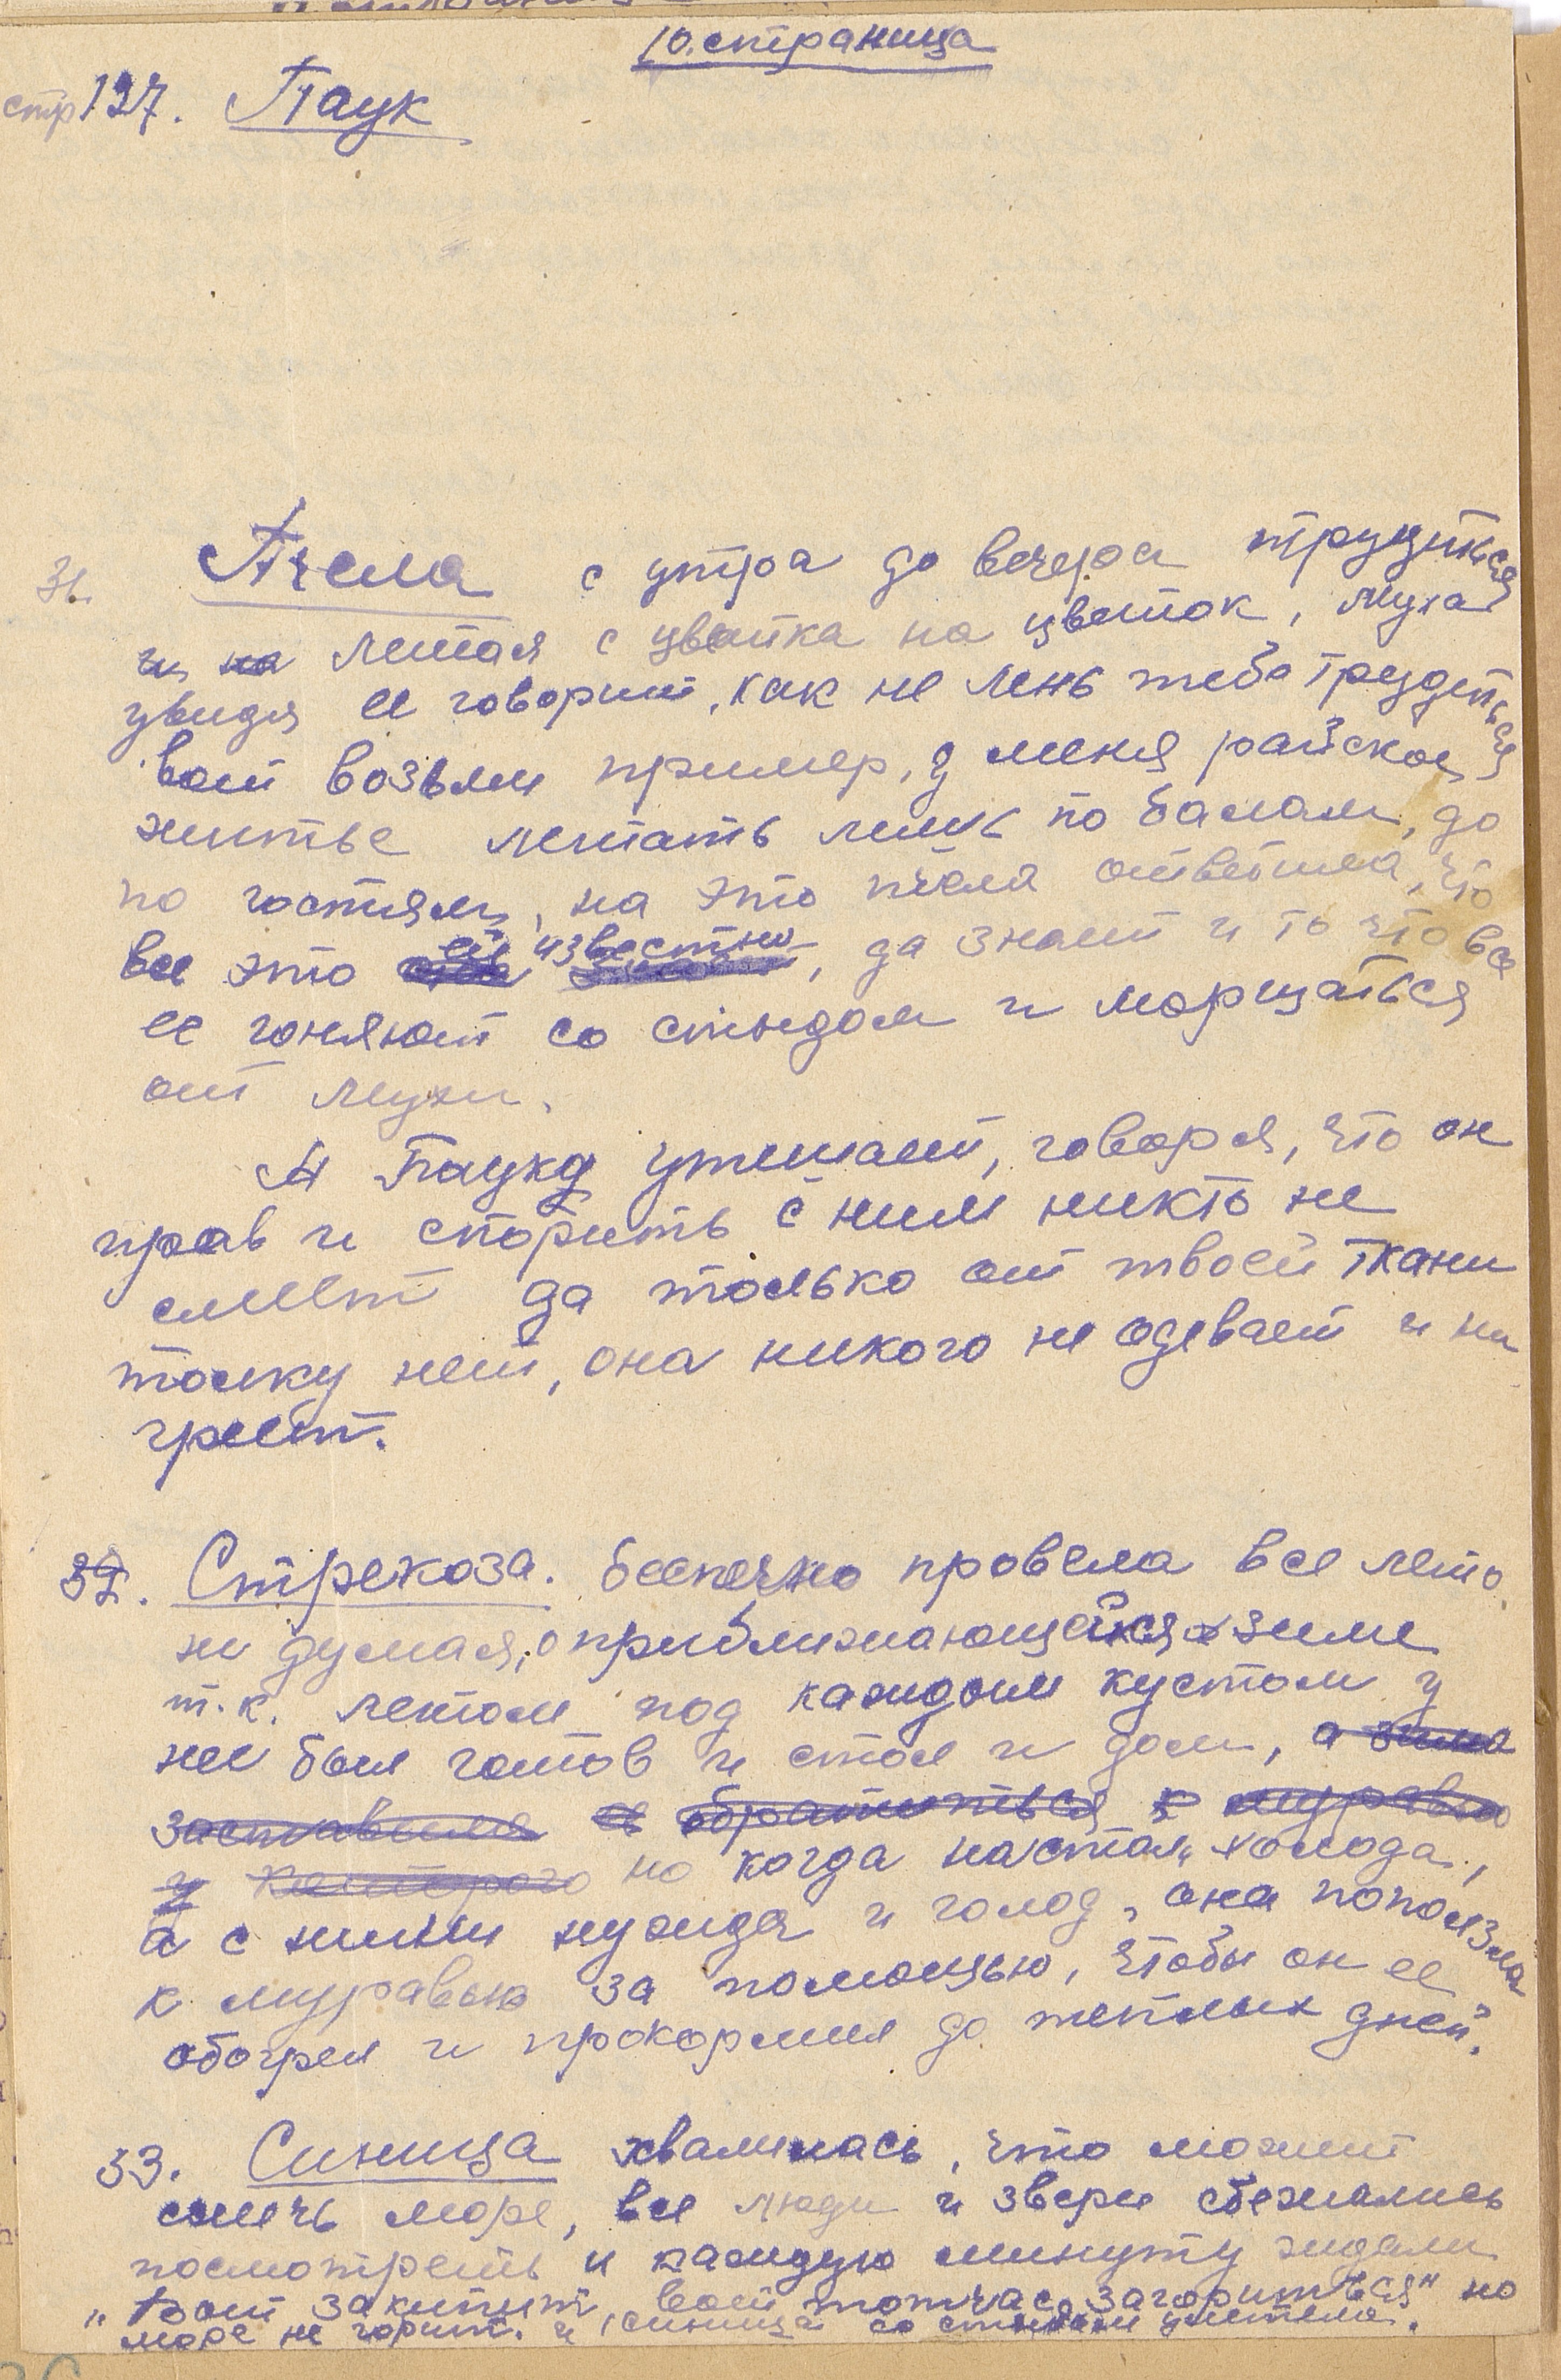 10. страница
стр 127. Паук
31. Пчела с утра до вечера трудиться
и, на летая с цветка на цветок, муха
увидя ее говорит, как не лень тебе трудиться
вот возьми пример, у меня райское
житье летать лишь по балам, до
по гостям, на это пчела ответила, что
все это ей известно, да знает и то что все
ее гоняют со стыдом и морщаться
от мухи.
А Пауку утешает, говоря, что он
прав и спорить с ним никто не
смеет да только от твоей ткани
толку нет, она никого не одевает и не
греет.
32. Стрекоза. беспечно провела все лето
не думая, о приближающейся зиме
т.к. летом под каждым кустом у
нее был готов и стол и дом, а зима
заставила ее обратиться к муравью
у которого но когда настал холода,
а с ними нужда и голод, она поползла
к муравью за помощью, чтобы он ее
обогрел и прокормил до теплых дней.
33. Синица хвалилась, что может
сжечь море, все люди и звери сбежались
посмотреть и каждую минуту ждали
"вот закипит, вот тотчас загориться" но
море не горит. и синица со стыдом улетела.